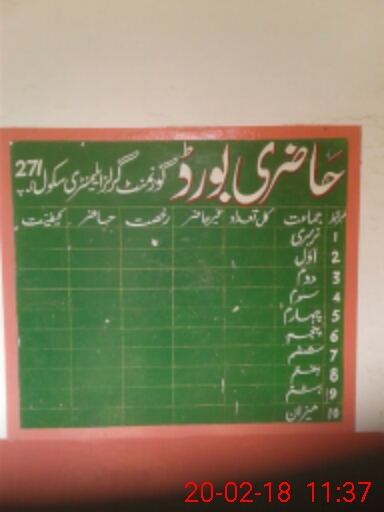 حاضری بورڈ گورنمنٹ گرلز ایلیمنٹری سکول 271
نمبرشمار جماعت کل تعداد غیر حاضر رخصت حاضر کیفیت
1 نرسری
2 اوّل
3 دوم
4 سوم
5 چہارم
6 پنجم
7 ششم
8 ہفتم
9 ہشتم
10 میزان
20-02-18 11:37